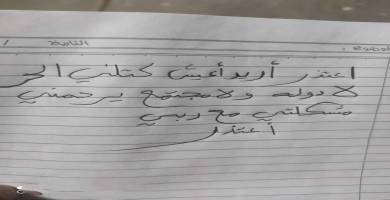 الموضوع : التاريخ /
اعتذر أريد أعيش كتلني الحر
لا دوله ولا مجتمع يرحمني
مشكلتي مع ربي
أعتذر